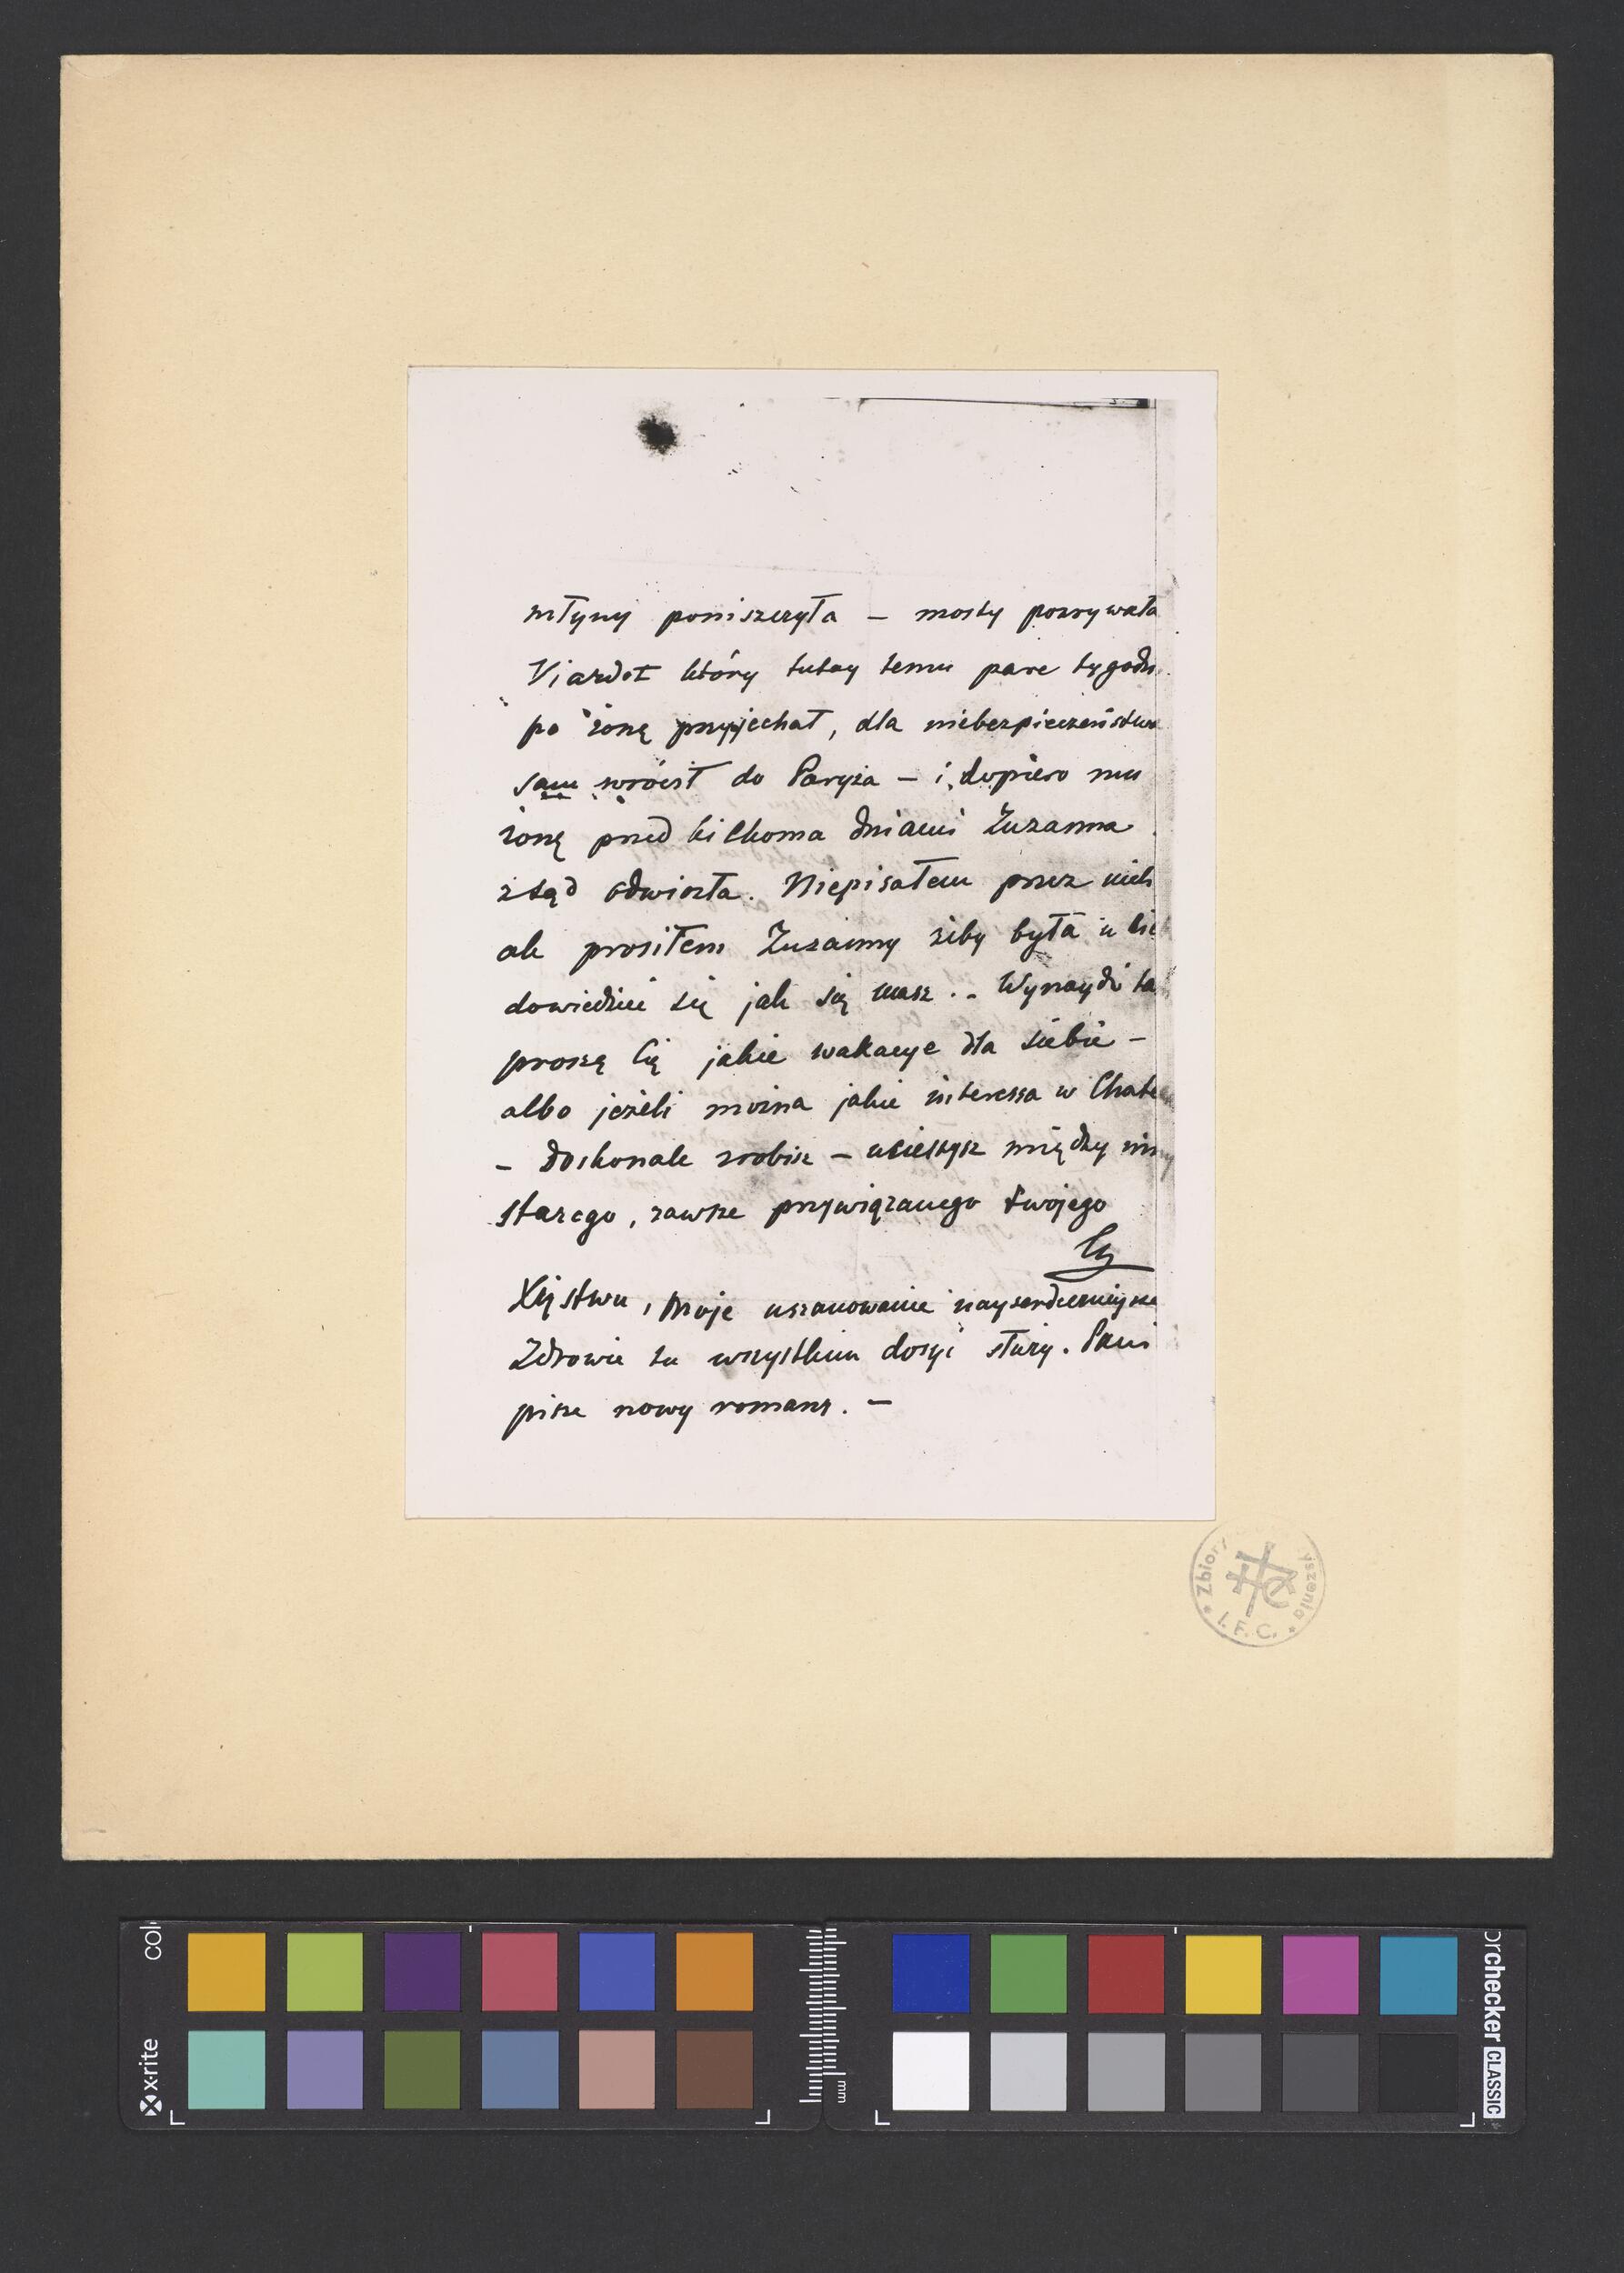 młyny poniszczyła – mosty pozrywała
Viardot który tutay temu pare tygodn.
po żonę przyjechał, dla niebezpieczeństwa
sam wrócił do Paryża – i dopiero mu
żonę przed kilkoma dniami Zuzanna
ztąd odwiozła. Niepisałem przez nich
ale prosiłem Zuzanny żeby była u Cie
dowiedzieć się jak się masz .. Wynaydź ta
proszę Cię jakie wakacye dla siebie –
albo jeżeli można jakie interessa w Chate
– doskonale zrobisz – ucieszysz między in
starego, zawsze przywiązanego twojego
Ch
Xięstwu, moje uszanowanie nayserdecznieysze
Zdrowie tu wszystkim dosyć służy. Pani
pisze nowy romans. –
Zbiory
I. F. C.
x-rite
colorchecker CLASSIC
mm